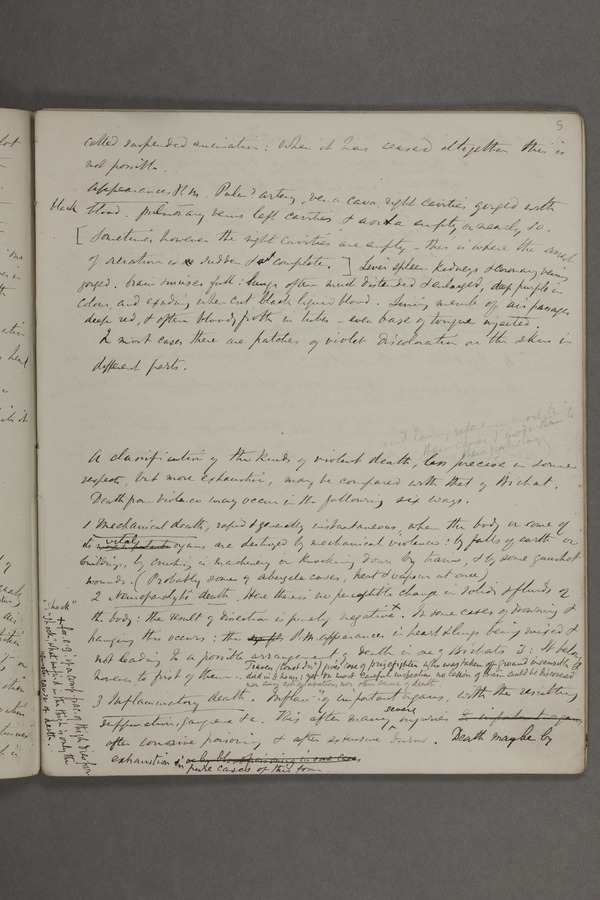 5
called suspended animation: When it has ceased altogether this is
not possible.
Appearances P.M. Pulm.y artery, vena cava, right cavities gorged with
black blood. pulmonary veins left cavities & aorta empty or nearly so.
[Sometimes however the right cavities are empty – this is where the arrest
of aeration is sudden & complete.] Liver spleen kidneys & coronary veins
gorged. brain sinuses full: lungs often much distended & enlarged, deep purple in
colour, and exuding when cut black liquid blood. Lining memb of air passages
deep red, & often bloody froth in tubes – even base of tongue injected
In most cases there are patches of violet discoloration on the skin in
different parts.
A classification of the kinds of violent death, less precise in some
respects, but more exhaustive, may be compared with that of Bichat.
Death from violence may occur in the following six ways.
1 Mechanical death, rapid & generally instantaneous, when the body or some of
its vital organs are destroyed by mechanical violence: by falls of earth or
buildings, by crushing in machinery or knocking down by trains, & by some gunshot
wounds. (Probably some of
cases, heat & vapour at once)
2 Neuroparalytic death. Here there is no perceptible change in solids & fluids of
the body: the result of dissection is purely negative +. In some cases of drowning &
hanging this occurs: the P.M. appearances in heart & lungs being mixed &
not leading to a possible arrangement of death in one of Bichats 3: It belongs
however to first of them.
Travers (Const. Irr.) gives case of prizefighter who was taken off ground insensible &
died in
hours; yet on most careful inspection no lesion of brain could be discovered
nor any extravasation, nor other cause of death
3 Inflammatory death. Inflam.n of important organs, with the resulting
suppuration, gangrene &c. This after many severe injuries
after corrosive poisoning & after extensive burns. Death may be by
exhaustion in pure cases of this form
"Shock"
+ for e.g. of a comp. frac. of thigh
shock
in the
is only the
cause of death.